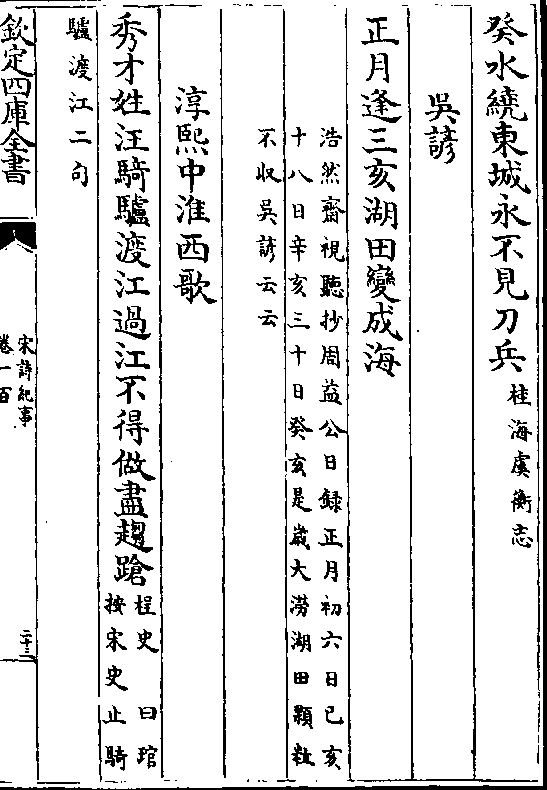 癸水繞東城永不見刀兵桂海虞衡志
吳諺
正月逢三亥湖田變成海
浩然齋視聽抄周益公日録正月初六日已亥
十八日辛亥三十日癸亥是歲大澇湖田顆粒
不収吳諺云云
淳熙中淮西歌
秀才姓汪騎驢渡江過江不得做盡趨蹌
桯史 曰琯
按宋史止騎
驢渡江二句
欽定四庫全書
宋詩紀事
卷一百
二十三